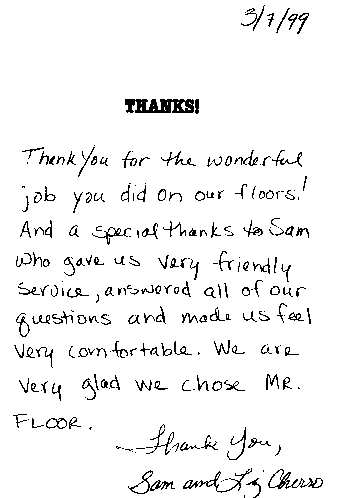 3/7/99
THANKS!
Thank You for the wonderful
job you did on our floors!
And a special thanks to Sam
who gave us very friendly
service, answered all of our
questions and made us feel
very comfortable. We are
very glad we chose MR.
FLOOR.
Thank You,
Sam and Liz